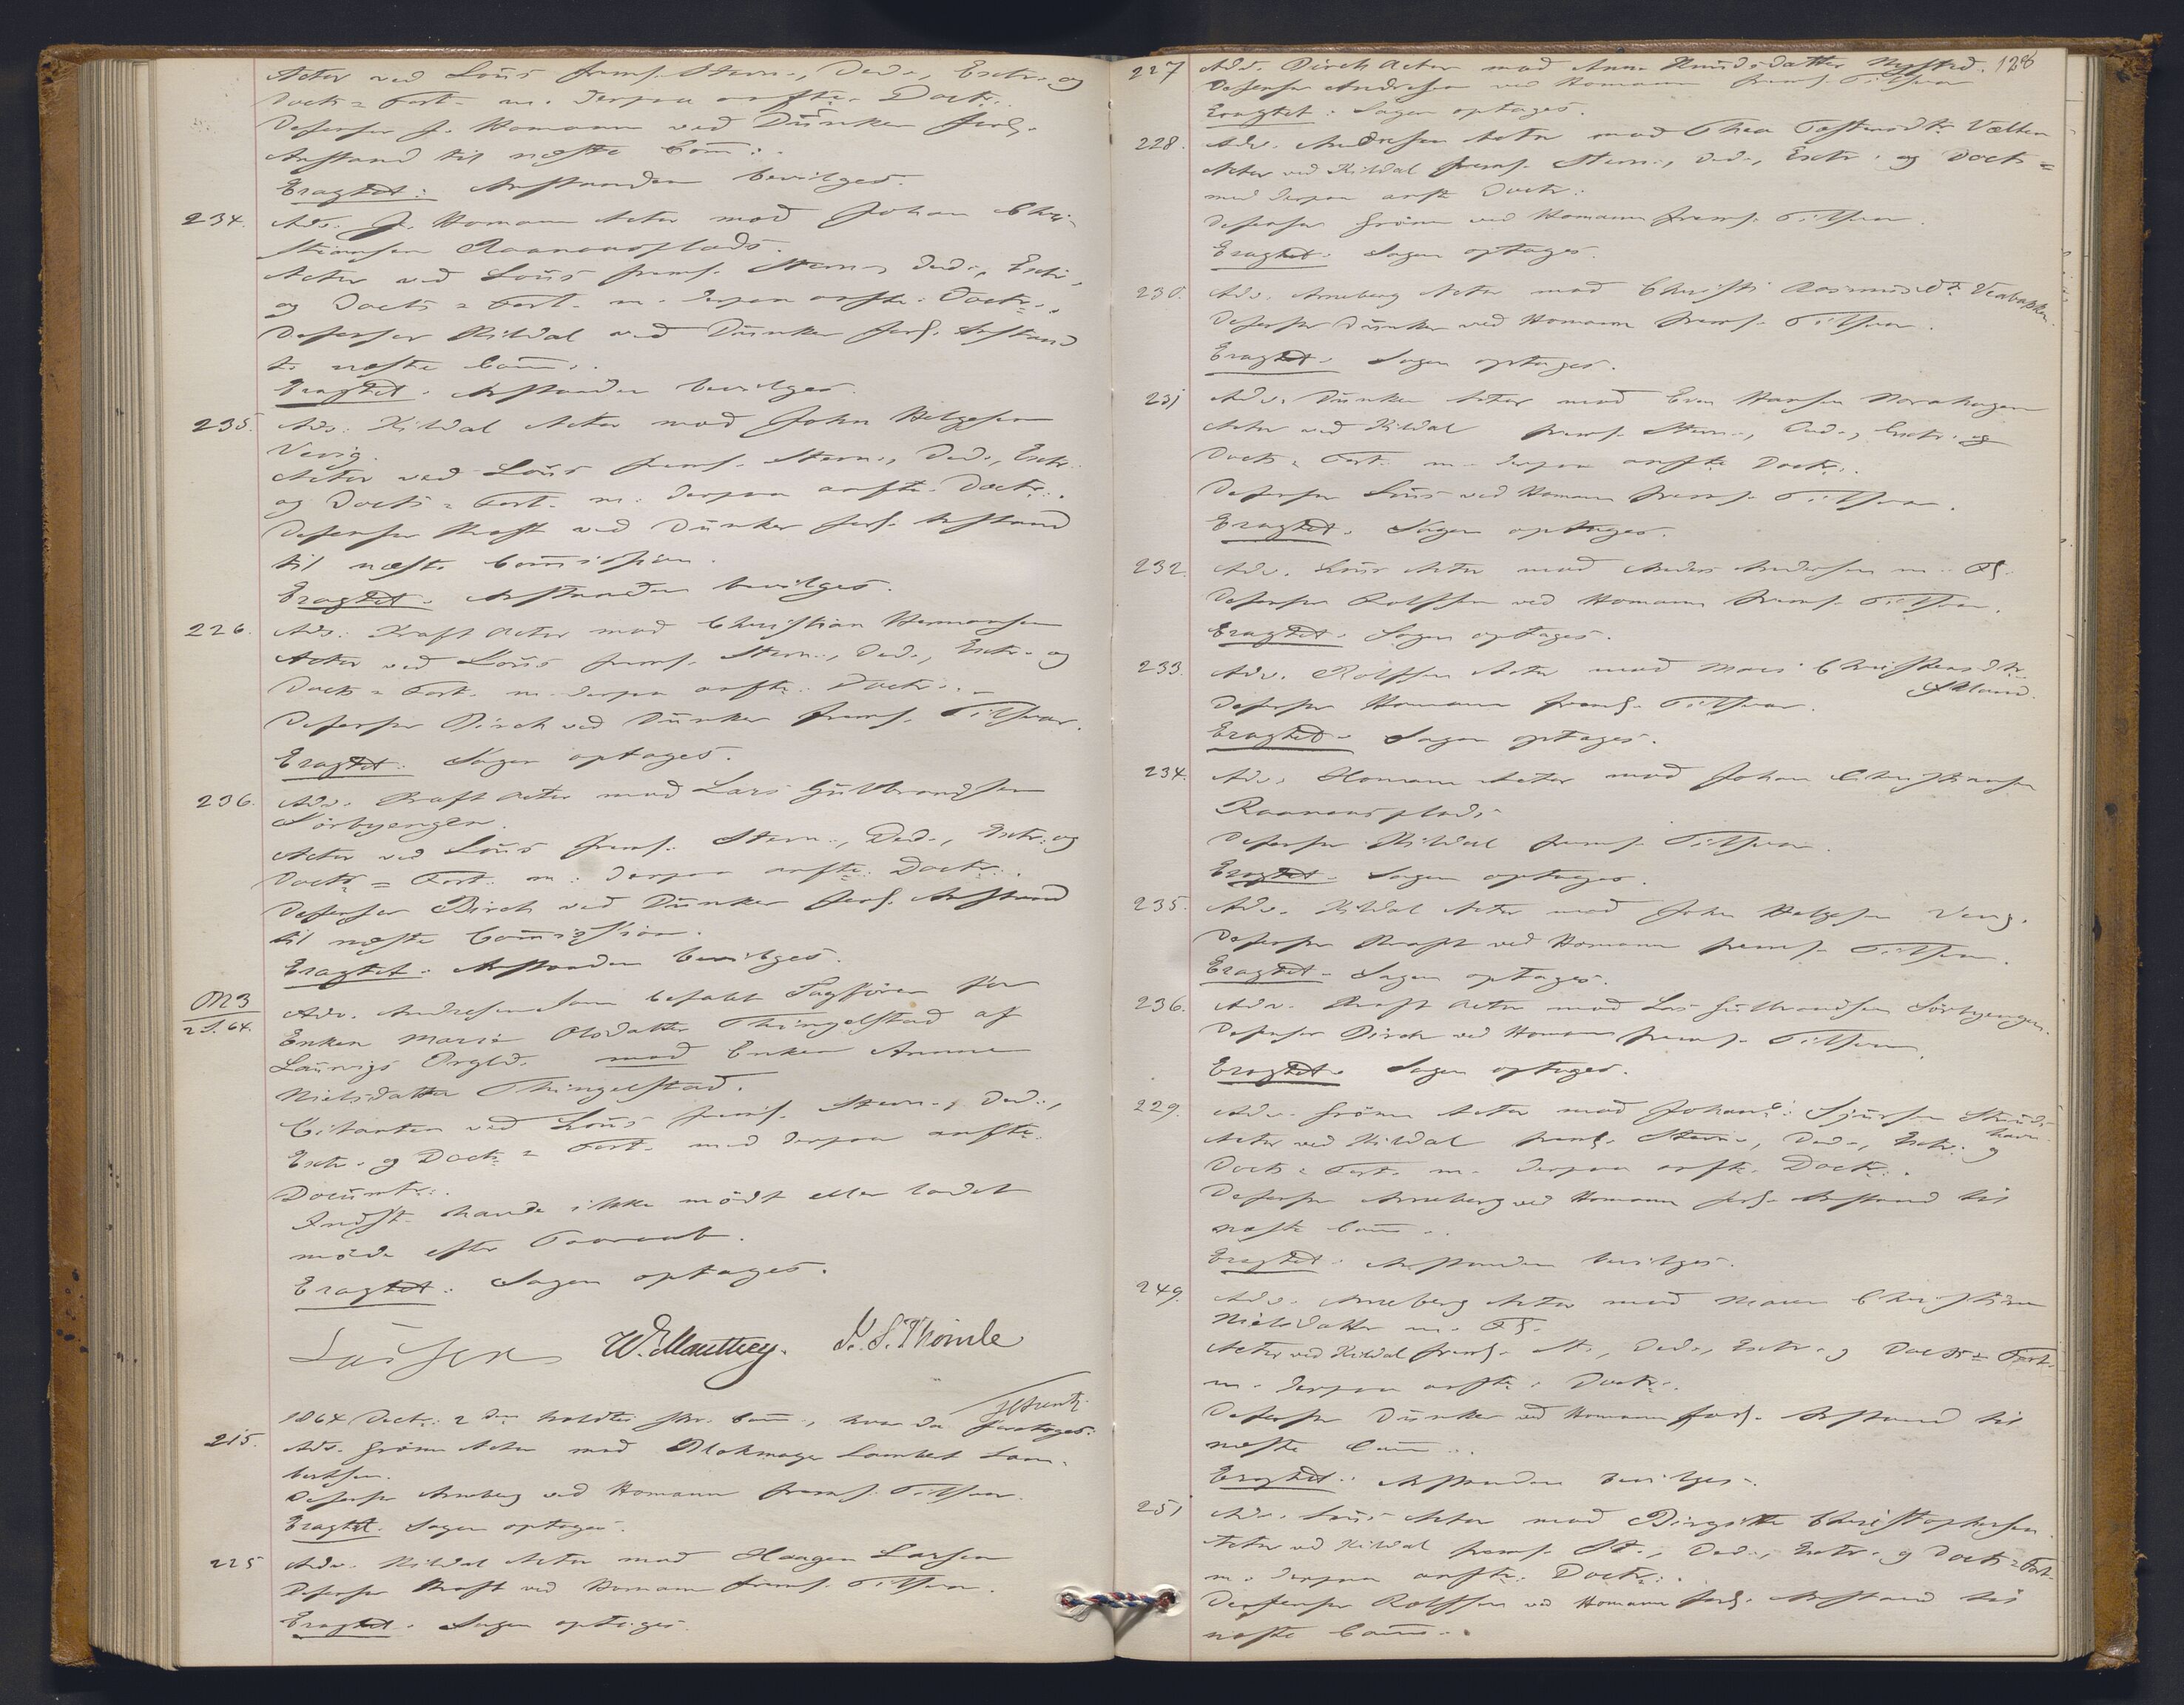 Actor ved Löüs frems. Stevn., Ded., Extr. og
Docts = Fort. m. derpaa anfte. Doctr.
Defensor J. Homann ved Dünker forl.
Anstand til næste Com:.
Eragtet: Anstanden bevilges.
234. Adv. J. Homann Actor mod Johan Chri-
stiansen Raanaasplads.
Actor ved Löüs frems. Stevn., Ded., Extr.,
og Docts = Fort. m. derpaa anfte. Doctr.
Defensor Kildal ved Dünker forl. Anstand
t. næste Com:.
Eragtet: Anstanden bevilges.
235. Adv. Kildal Actor mod John Helgesen
Actor ved Löüs frems. Stevn., Ded., Extr.
og Docts = Fort. m. derpaa anfte. Doctr.
Defensor Kraft ved Dünker forl. Anstand
til næste Comission.
Eragtet: Anstanden bevilges.
226. Adv. Kraft Actor mod Christian Hermansen
Actor ved Löüs frems. Stevn., Ded., Extr. og
Docts = Fort. m. derpaa anfte. Doctr.
Defensor Birch ved Dünker frems. Tilsvar.
Eragtet: Sagen optages.
236. Adv. Kraft Actor mod Lars Gülbrandsen
Sörbyengen.
Actor ved Löüs frems. Stevn., Ded., Extr. og
Docts = Fort. m. derpaa anfte. Doctr.
Defensor Birch ved Dünker forl. Anstand
til næste Comission.
Eragtet: Anstanden bevilges.
M3 Adv. Andresen som befalet Sagförer for
2 S. 64. Enken Maria Olsdatter Thingelstad af
Laurvigs Prgld. mod Enken Anne
Nielsdatter Thingelstad.
Citanten ved Löüs frems. Stevn., Ded.,
Extr. og Docts = Fort. med derpaa anfte.
Documtr.
Indst. havde ikke mödt eller ladet
möde efter Paaraab.
Eragtet: Sagen optages.
Lassen W. E. Manthey. S. S. Thomle
1864 Dectr. 2 den holdtes Com:, hvor da foretoges:
215. Adv. Grönn Actor mod Blokmager Lambert Lam-
bertsen.
Defensor Arneberg ved Homann frems. Tilsvar.
Eragtet: Sagen optages.
225 Adv. Kildal Actor mod Haagen Larsen
Defensor Kraft ved Homann frems. Tilsvar.
Eragtet: Sagen optages.
128
227 Adv. Birch Actor mod Anne Knudsdatter Nystad.
Defensor Andresen ved Homann frems. Tilsvar
Eragtet: Sagen optages.
228. Adv. Andresen Actor mod Thea
Actor ved Kildal frems. Stevn., Ded., Extr. og Docts =
med derpaa anfte Doctr.
Defensor Grönn ved Homann frems. Tilsvar.
Eragtet: Sagen optages.
230. Adv. Arneberg Actor mod Christi
Defensor Dünker ved Homann frems. Tilsvar.
Eragtet: Sagen optages.
231 Adv. Dünker Actor mod Even Hansen Norahagen
Actor ved Kildal frems. Stevn., Ded., Extr. og
Docts = Fort. m. derpaa anfte Doctr.
Defensor Löüs ved Homann frems. Tilsvar.
Eragtet: Sagen optages.
232. Adv. Löüs Actor mod Anders Andersen m. Fl.
Defensor Rolfsen ved Homann frems. Tilsvar.
Eragtet: Sagen optages.
233. Adv. Rolfsen Actor mod Mari Christensdtr.
Defensor Homann frems. Tilsvar.
Eragtet: Sagen optages.
234. Adv. Homann Actor mod Johan Christiansen
Raanaasplads
Defensor Kildal frems. Tilsvar.
Eragtet: Sagen optages.
235. Adv. Kildal Actor mod John Helgesen
Defensor Kraft ved Homann frems. Tilsvar.
Eragtet: Sagen optages.
236. Adv. Kraft Actor mod Lars Gulbrandsen Sörbyengen.
Defensor Birch ved Homann frems. Tilsvar.
Eragtet: Sagen optages.
229. Adv. Grönn Actor mod
Actor ved Kildal frems. Stevn., Ded., Extr. og
Docts = Fort. m. derpaa anfte. Doctr.
Defensor Arneberg ved Homann forl. Anstand til
næste Com:.
Eragtet: Anstanden bevilges.
249. Adv. Arneberg Actor mod Maren Christine
Nielsdatter m. Fl.
Actor ved Kildal frems. St., Ded., Extr. og Docts = Fort.
m. derpaa anfte. Doctr.
Defensor Dünker ved Homann forl. Anstand til
næste Com:.
Eragtet: Anstanden bevilges.
251 Adv. Löüs Actor mod Birgitte Christophersen.
Actor ved Kildal frems. St., Ded., Extr. og Docts = Fort.
m. derpaa anfte. Doctr.
Defensor Rolfsen ved Homann forl. Anstand til
næste Com:.